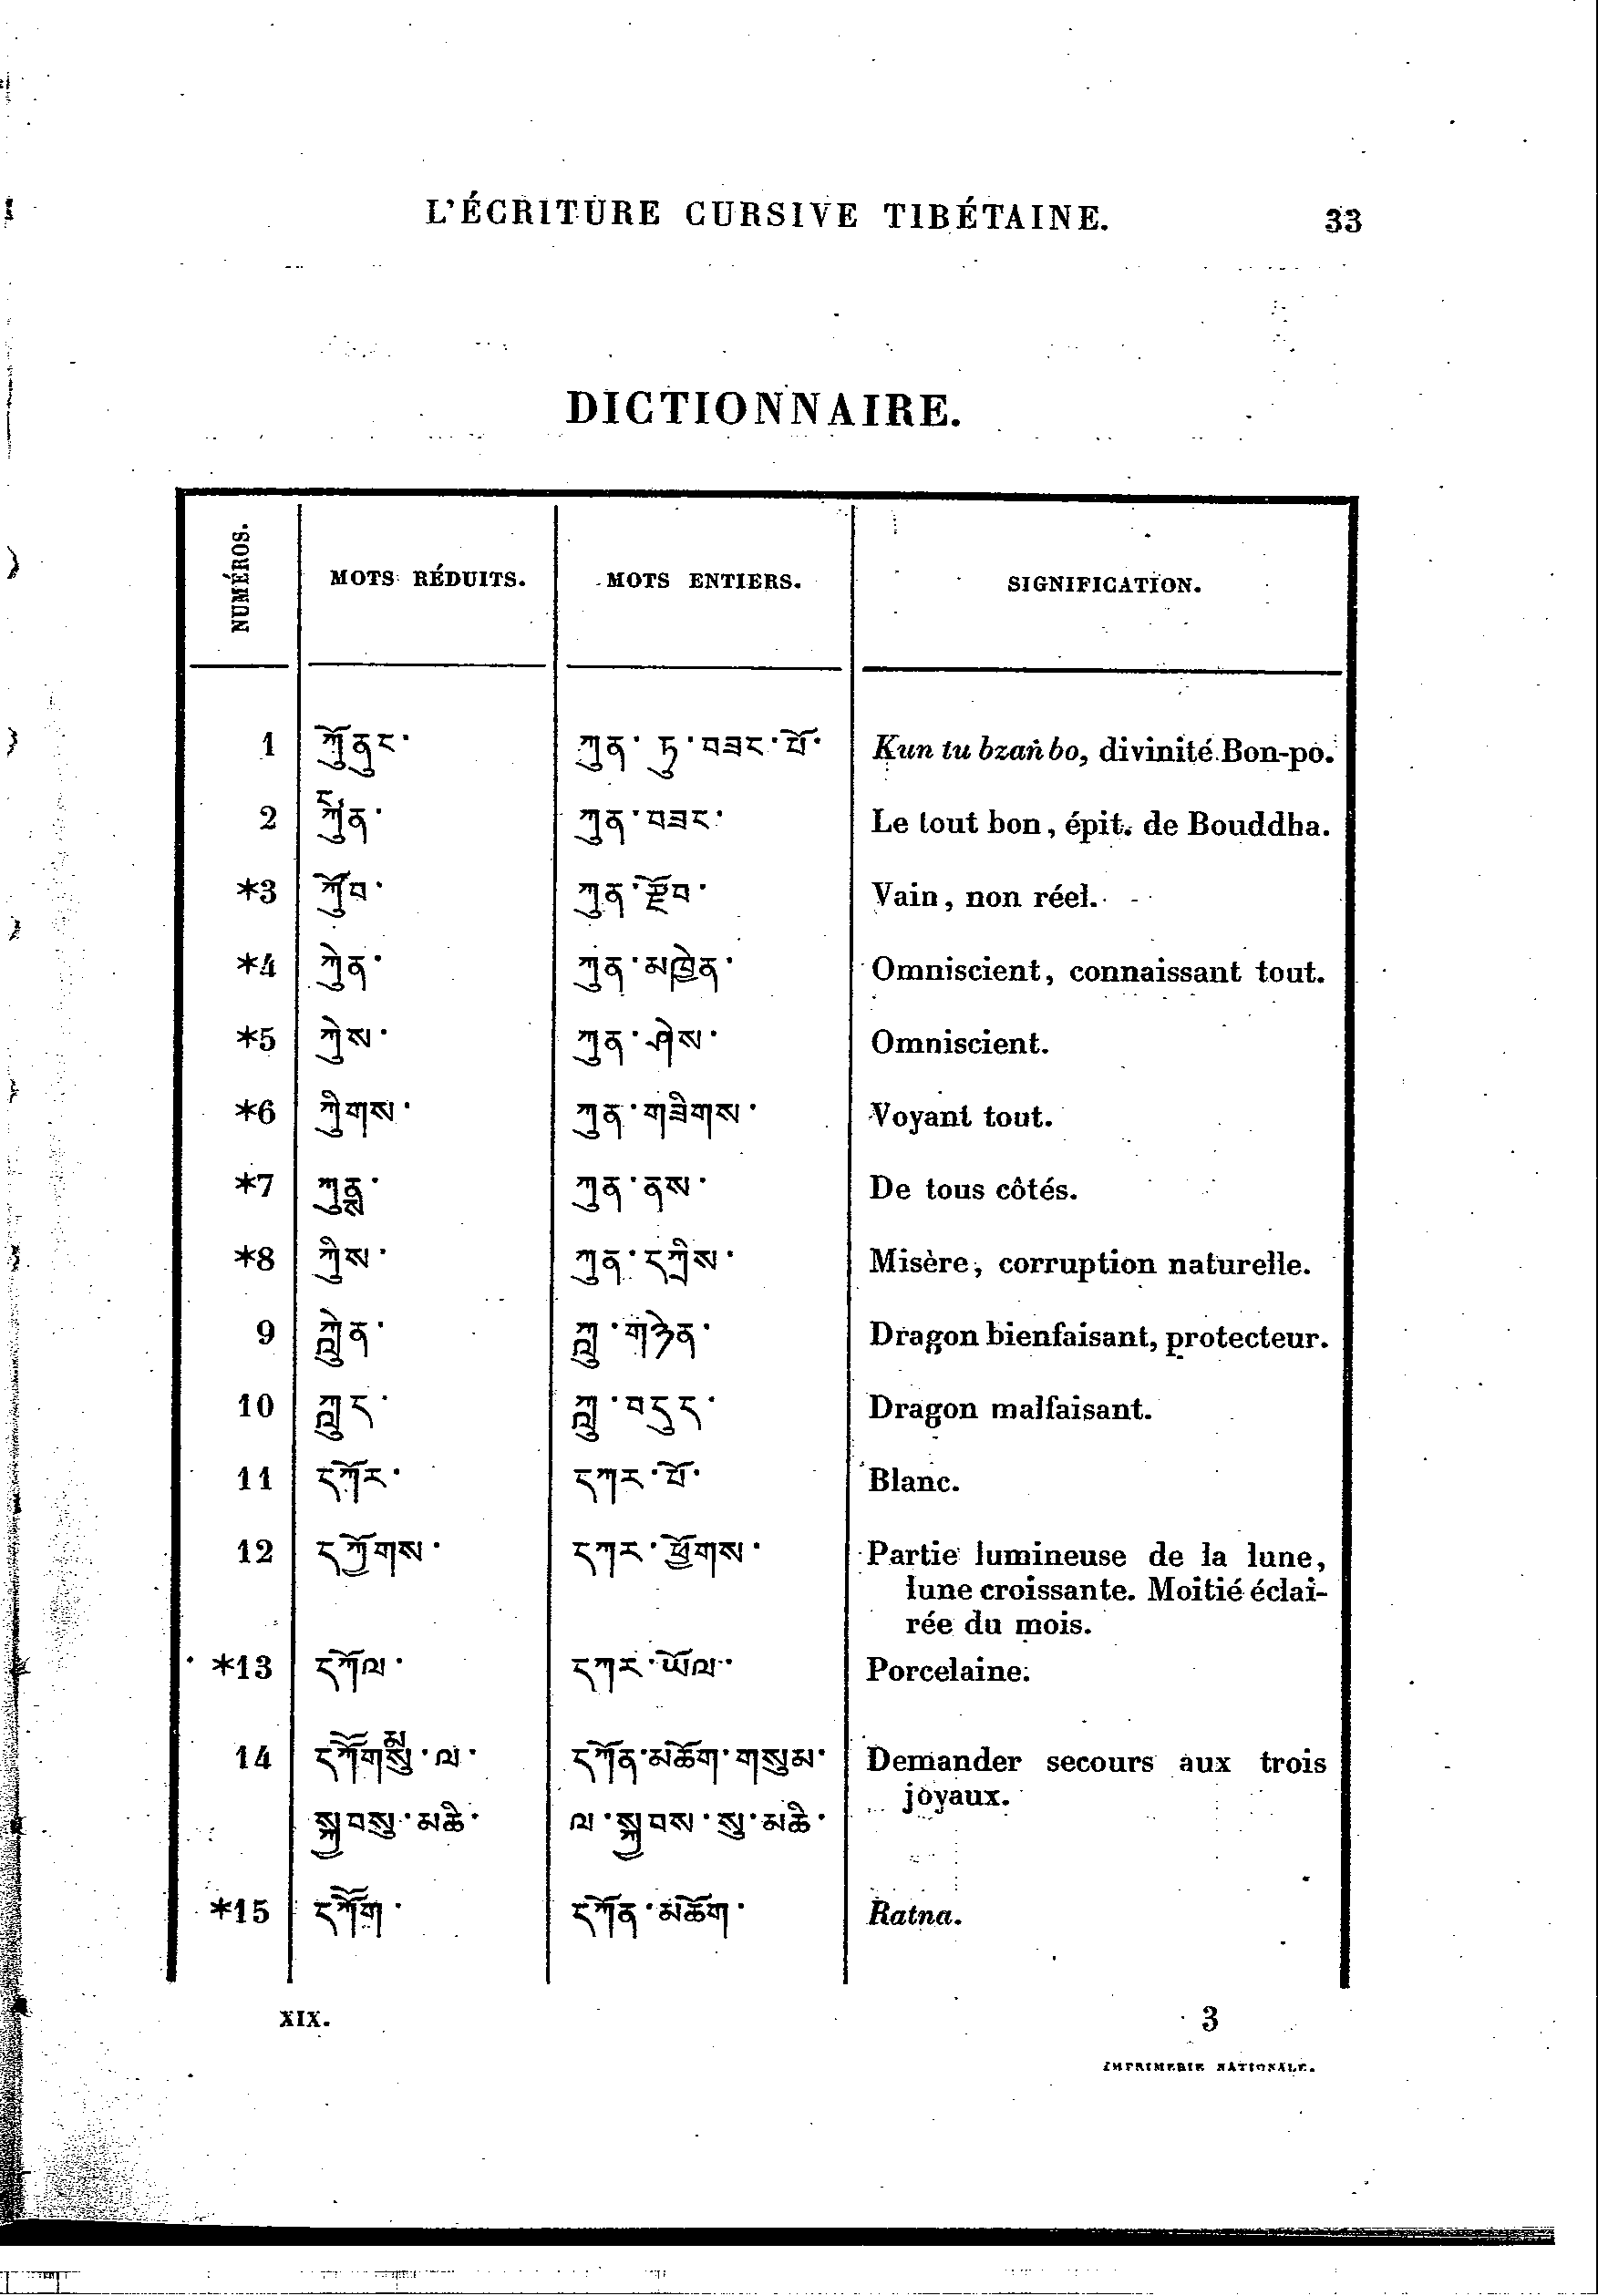 L'ÉCRITURE CURSIVE TIBÉTAINE. 33
DICTIONNAIRE.
NUMÉROS. MOTS RÉDUITS. MOTS ENTIERS. SIGNIFICATION.
1 ཀོུནུང་ ཀུན་ ཏུ་བཟང་པོ་ Kun tu bzaṅ bo, divinité Bon-po.
2 ཀུན་བཟང་ Le tout bon, épit. de Bouddha.
*3 ཀོུབ་ ཀུན་རྫོབ་ Vain, non réel.
*4 ཀེུན་ ཀུན་མཁྱེན་ Omniscient, connaissant tout.
*5 ཀེུས་ ཀུན་ཤེས་ Omniscient.
*6 ཀིུགས་ ཀུན་གཟིགས་ Voyant tout.
*7 ཀུནྶ་ ཀུན་ནས་ De tous côtés.
*8 ཀིུས་ ཀུན་དཀྲིས་ Misère, corruption naturelle.
9 ཀླེུན་ ཀླུ་གཉེན་ Dragon bienfaisant, protecteur.
10 ཀླུད་ ཀླུ་བདུད་ Dragon malfaisant.
11 དཀོར་ དཀར་པོ་ Blanc.
12 དཀྱོགས་ དཀར་ཕྱོགས་ Partie lumineuse de la lune,
lune croissante. Moitié éclai-
rée du mois.
*13 དཀོལ་ དཀར་ཡོལ་ Porcelaine.
14 ལ་ དཀོན་མཆོག་གསུམ་ Demander secours aux trois
joyaux.
སྐྱབསུ་མཆི་ ལ་སྐྱབས་སུ་མཆི་
*15 དཀཽག་ དཀོན་མཆོག་ Ratna.
XIX. 3
IMPRIMERIE NATIONALE.